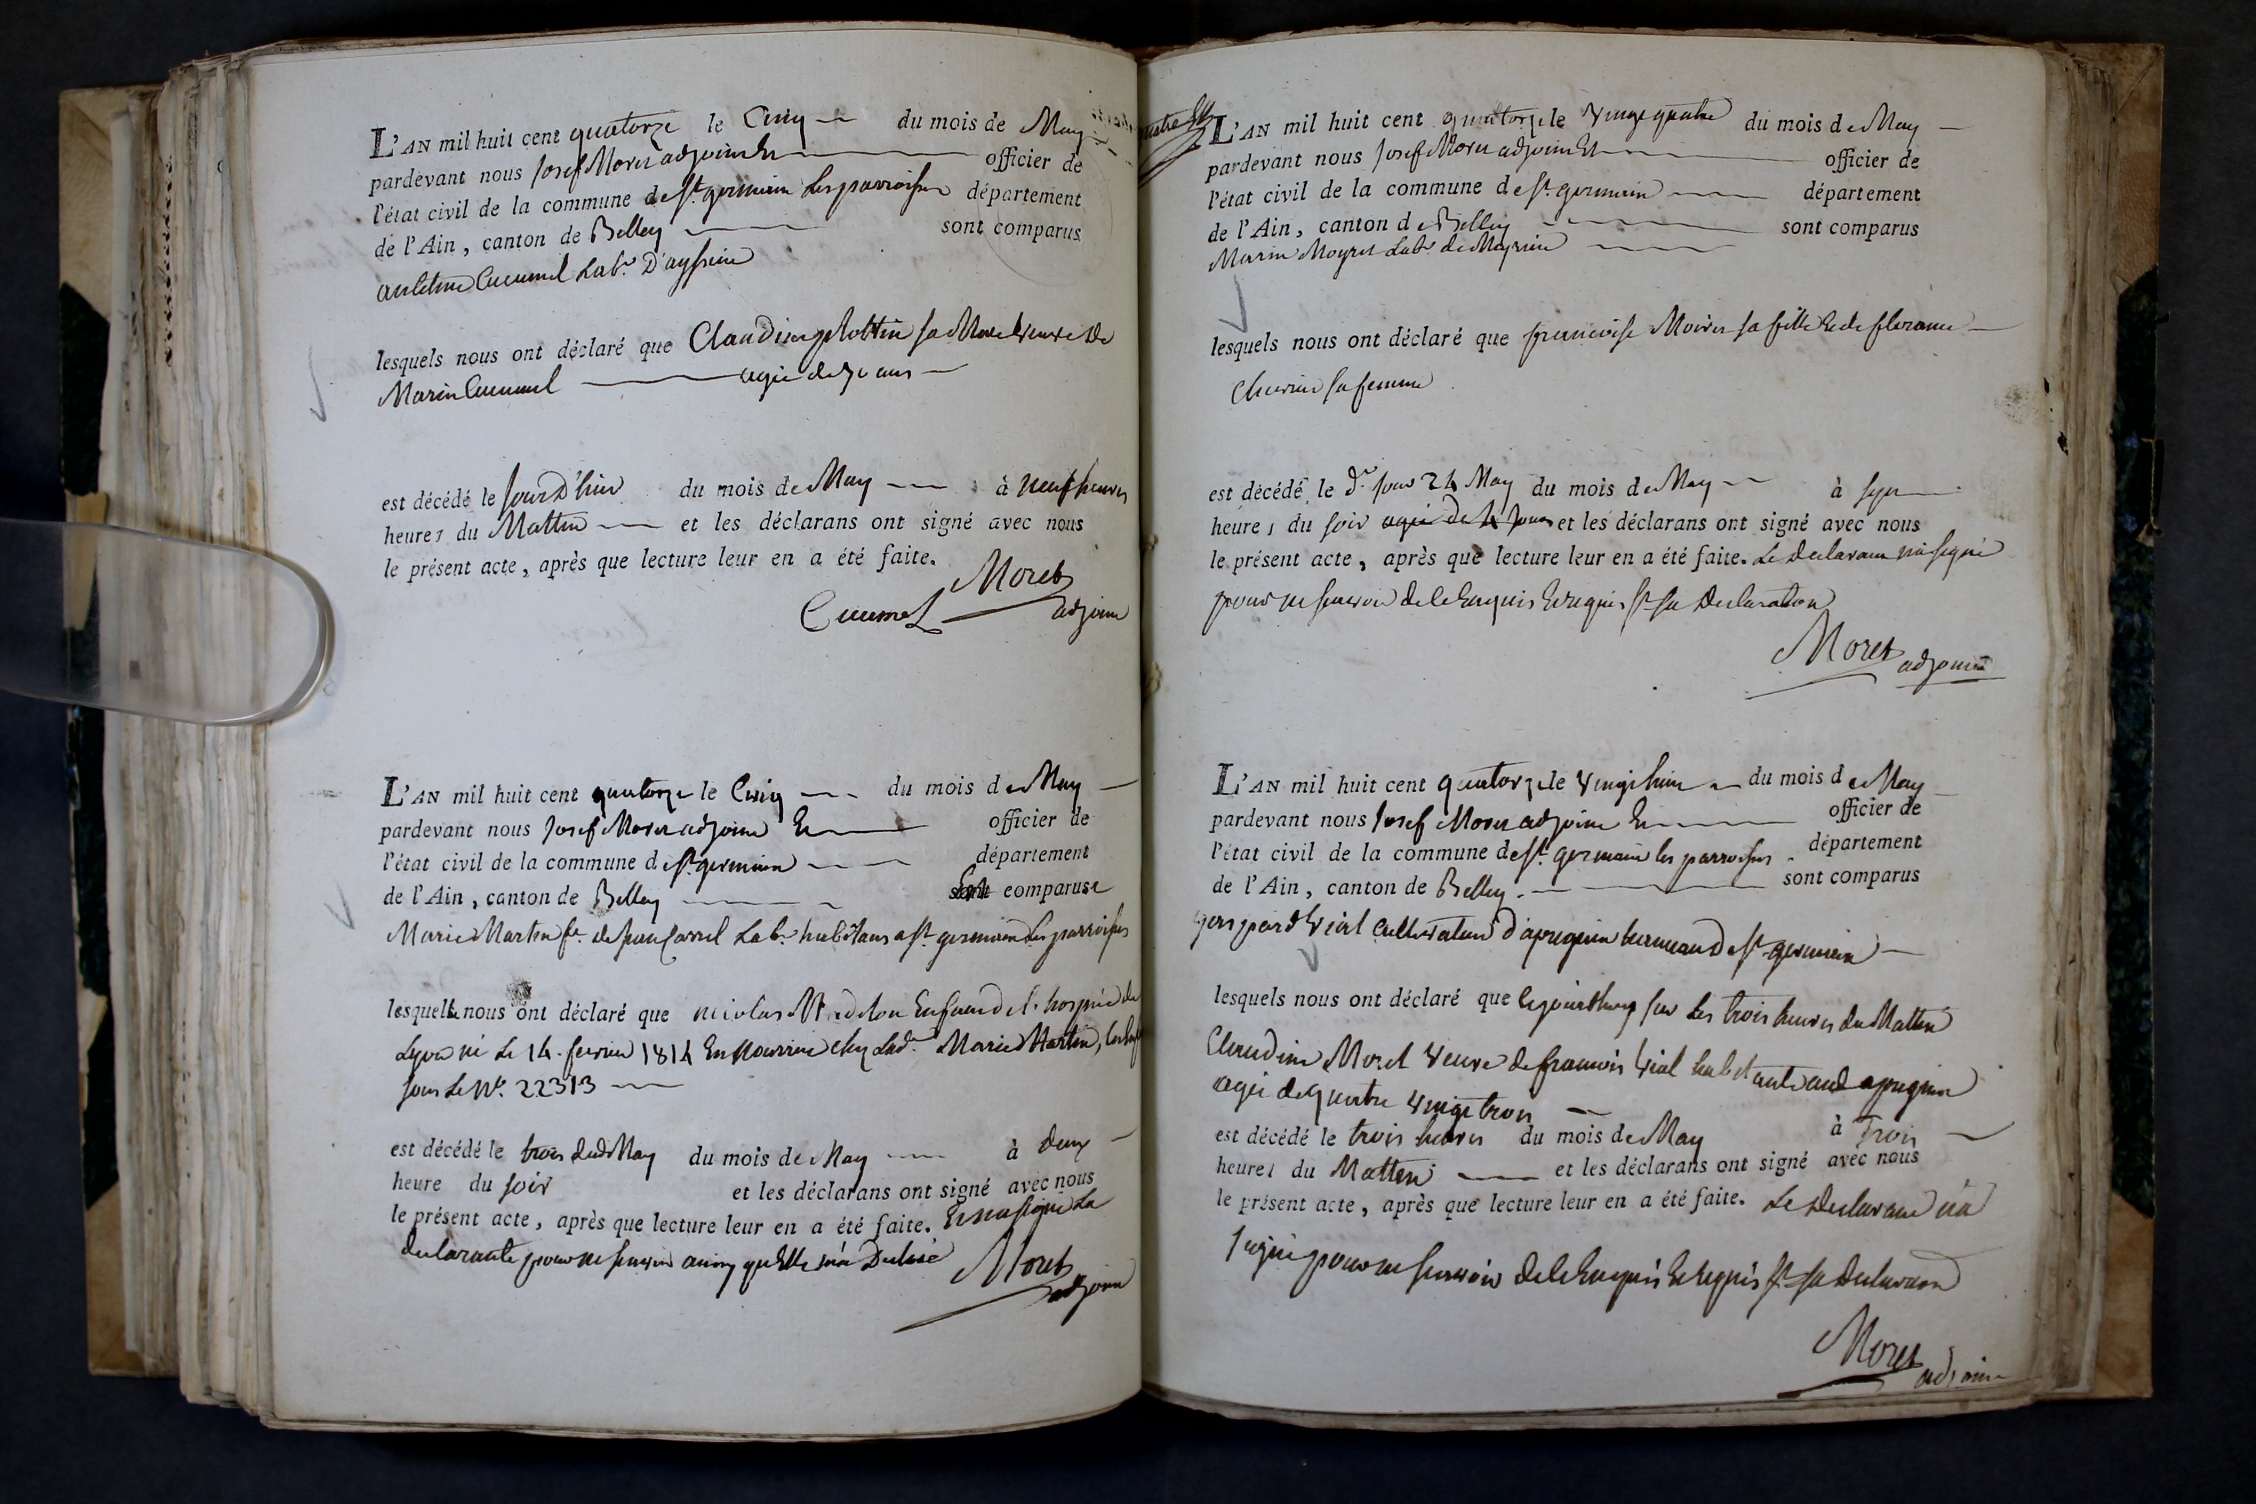 L'AN mil huit cent quatorze le Cinq du mois de May
pardevant nous Josef Moret adjoint Et officier de
l'état civil de la commune de St. germain Les parroisses département
de l'Ain, canton de Belley sont comparus
antelme Cucumel Lab.r D'
lesquels nous ont déclaré que Claudine sa Mere veuve de
Marin Cucumel agée de 70 ans
est décédé le Jour D'hier du mois de May à neuf heures
heures du Mattin et les déclarans ont signé avec nous
le présent acte, après que lecture leur en a été faite.
Moret
Cucumel adjoint
L'AN mil huit cent quatorze le Cinq du mois de May
pardevant nous Josef Moret adjoint Et officier de
l'état civil de la commune de St. germain département
de l'Ain, canton de Belley Est comparuse
Marie Martin fe. de Lab.r habitans a St. germain Les parroisses
lesquelle nous ont déclaré que nicolas Enfand de l'hospice de
Lyon né Le 14 fevrier 1814 En Nourrice chez Lad.e Marie Martin,
sous Le No. 22313
est décédé le trois dud. May du mois de May à deux
heure du soir et les déclarans ont signé avec nous
le présent acte, après que lecture leur en a été faite. Et na signé La
declarante pour ne scavoir ainsy qu'Elle m'a Declaré
Moret
adjoint
L'AN mil huit cent quatorze le vingt quatre du mois de May
pardevant nous Josef Moret adjoint Et officier de
l'état civil de la commune de St. germain département
de l'Ain, canton de Belley sont comparus
Marin Lab.r de
lesquels nous ont déclaré que francoise sa fille Et de
sa femme
est décédé le d.t jour 24 May du mois de May à
heures du soir agée de 4 Jours et les déclarans ont signé avec nous
le présent acte, après que lecture leur en a été faite. Le declarant na signé
pour ne scavoir de ce Enquis Et requis St. sa Declaration
Moret adjoint
L'AN mil huit cent quatorze le vingt huit du mois de May
pardevant nous Josef Moret adjoint Et officier de
l'état civil de la commune de St. germain les parroisses département
de l'Ain, canton de Belley sont comparus
gaspard Vial Cultivateur d'apregnin hameau de St. germain
lesquels nous ont déclaré que cejourdhuy sur Les trois heures du Mattin
Claudine Moret veuve de francois Vial habitante aud. apregnin
agée de quatre vingt trois
est décédé le trois heures du mois de May à Trois
heures du Mattin et les déclarans ont signé avec nous
le présent acte, après que lecture leur en a été faite. Le Declarant na
signé pour ne scavoir de ce Enquis Et requis St. sa Declaraon
Moret adjoint